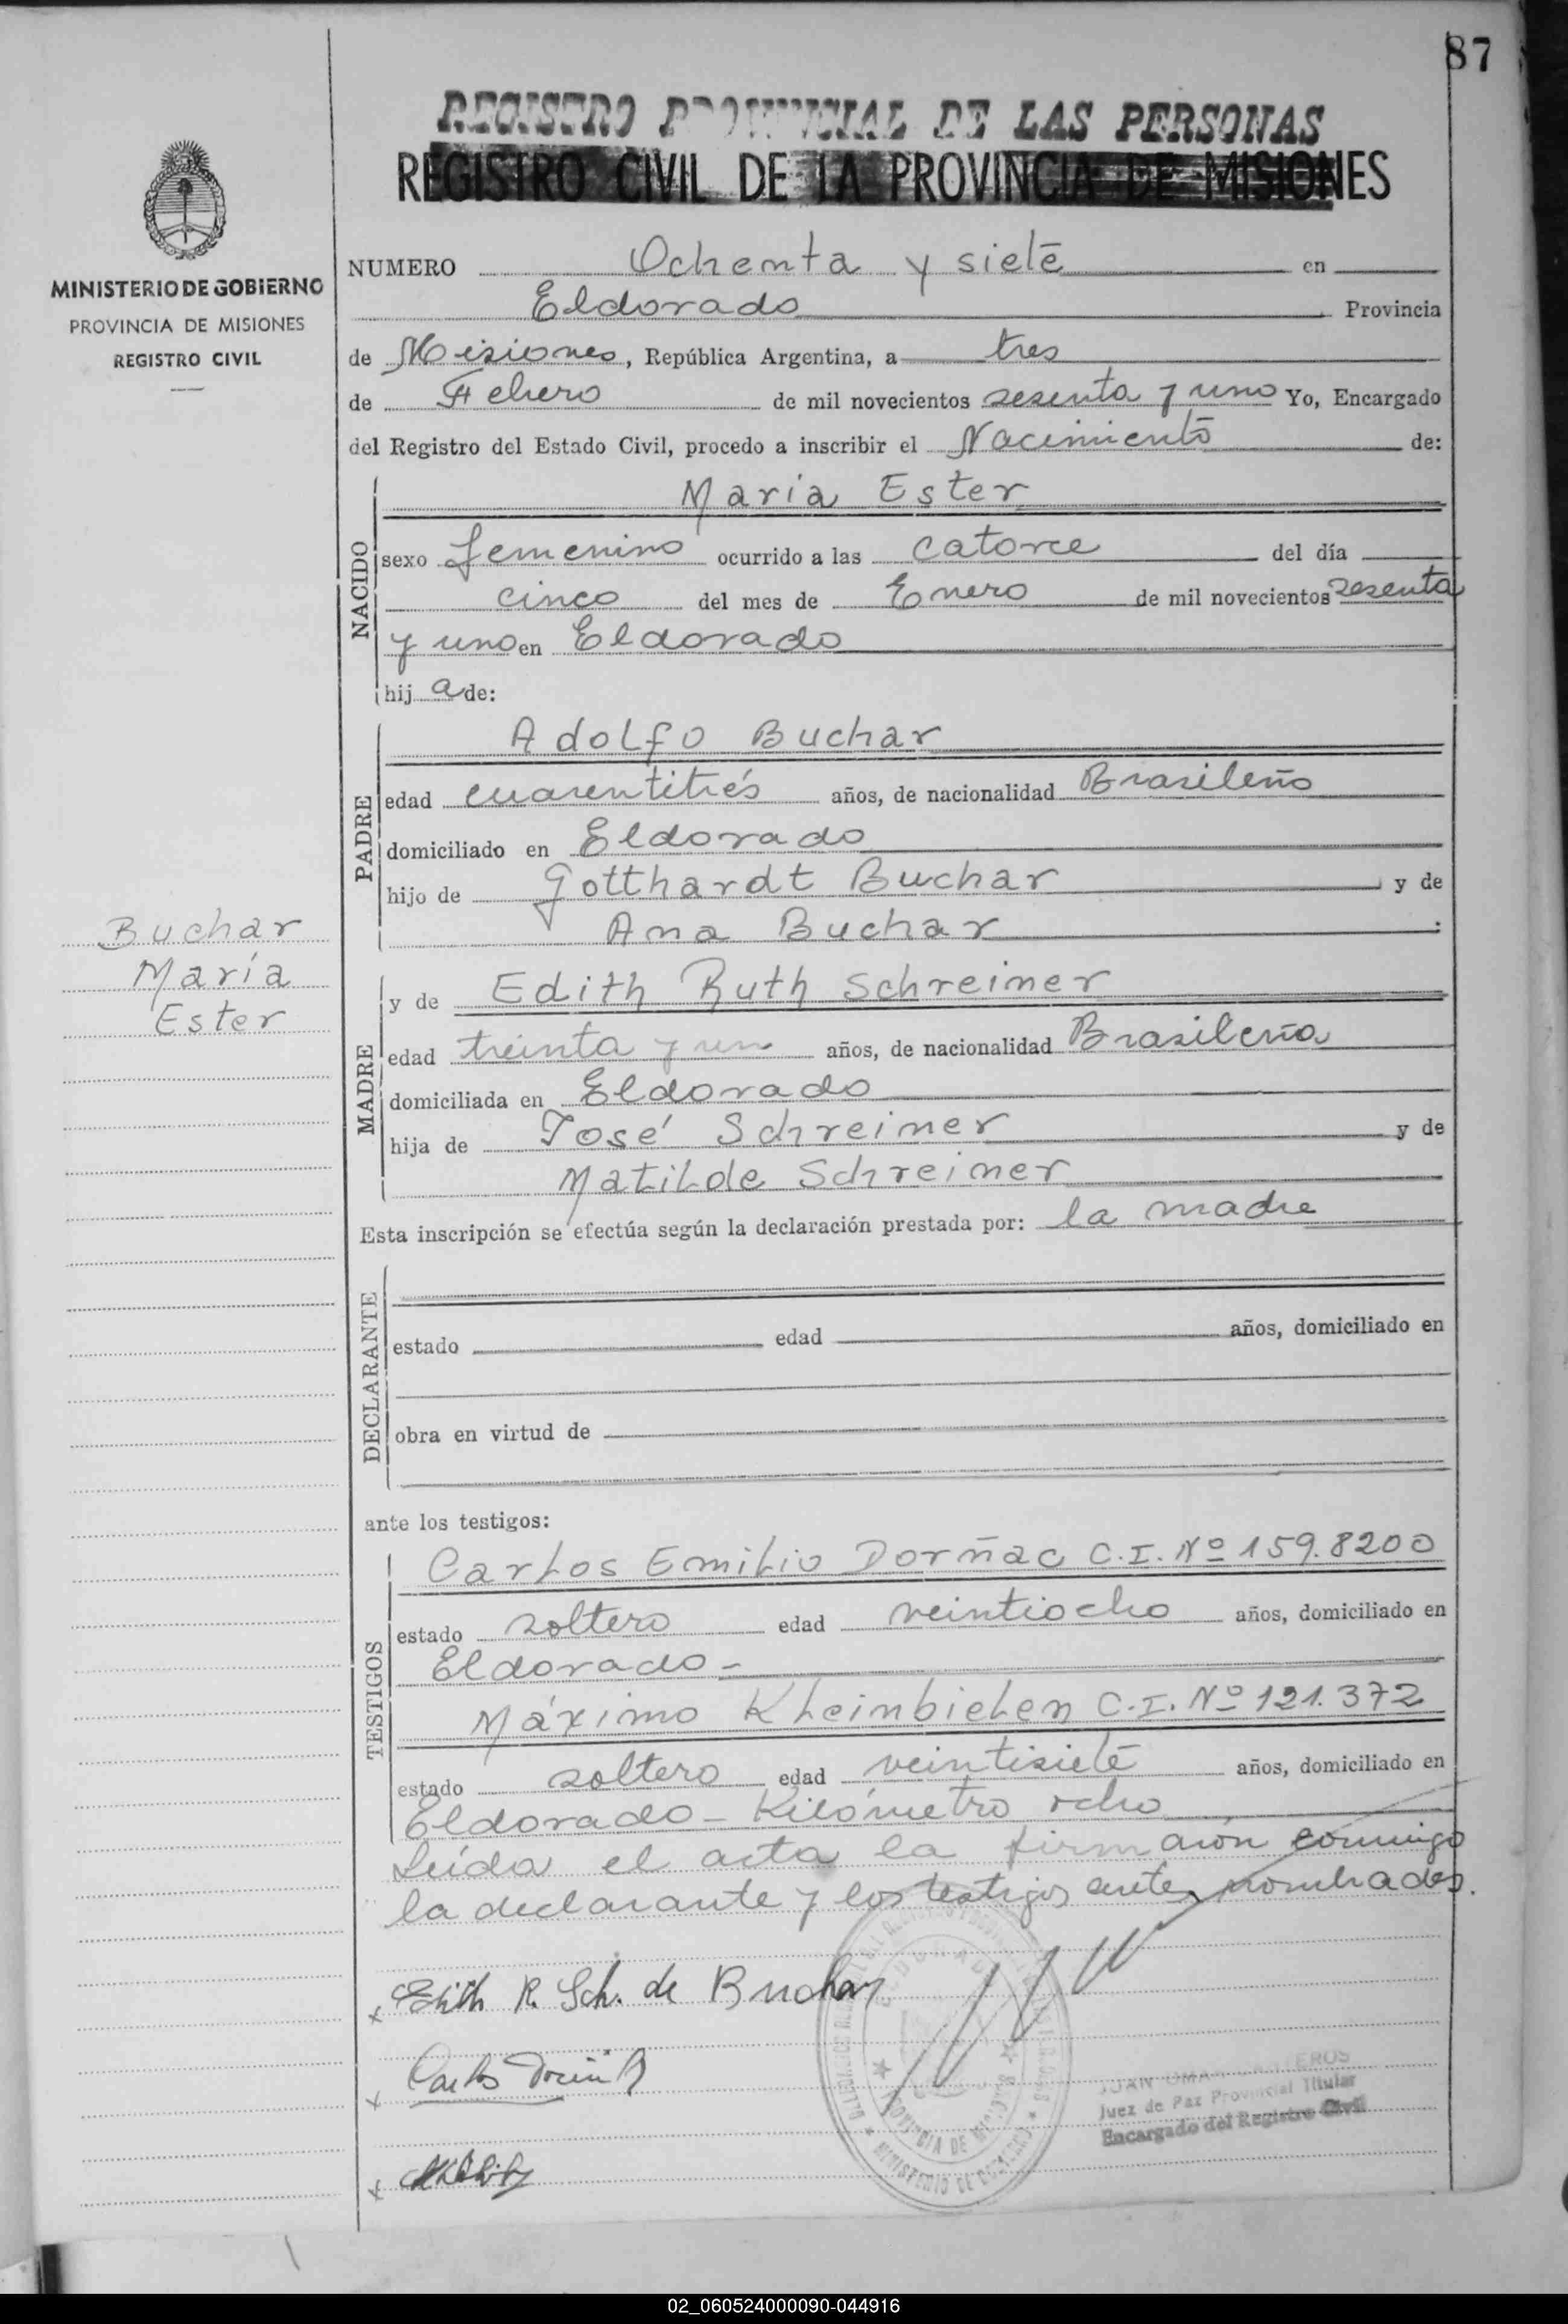 87
REGISTRO PROVINCIAL DE LAS PERSONAS
REGISTRO CIVIL DE LA PROVINCIA DE MISIONES
MINISTERIO DE GOBIERNO
PROVINCIA DE MISIONES
REGISTRO CIVIL
NUMERO Ochenta y siete en
Eldorado Provincia
de Misiones, República Argentina, a tres
de Febrero de mil novecientos sesenta y uno Yo, Encargado
del Registro del Estado Civil, procedo a inscribir el Nacimiento de:
NACIDO
María Ester
sexo femenino ocurrido a las catorce del día
cinco del mes de Enero de mil novecientos sesenta
y uno en Eldorado
hij a de:
PADRE
Adolfo Buchar
edad cuarentitrés años, de nacionalidad Brasileño
domiciliado en Eldorado
hijo de Gotthardt Buchar y de
Ana Buchar
Buchar
María
Ester
MADRE
y de Edith Ruth Schreiner
edad treinta y un años, de nacionalidad Brasileña
domiciliada en Eldorado
hija de José Schreiner y de
Matilde Schreiner
Esta inscripción se efectúa según la declaración prestada por: la madre
DECLARANTE
estado edad años, domiciliado en
obra en virtud de
ante los testigos:
TESTIGOS
Carlos Emilio Dorñac C.I. Nº 159.8200
estado soltero edad veintiocho años, domiciliado en
Eldorado-
Máximo Kleinbielen C.I. Nº 121.372
estado soltero edad veintisiete años, domiciliado en
Eldorado - Kilómetro ocho
Leída el acta la firmaron conmigo
la declarante y los testigos antes nombrados.
x Edith R. Sch. de Buchar
x Carlos
x
ELDORADO
PROVINCIA DE MISIONES
MINISTERIO DE GOBIERNO
JUAN OMAR
Juez de Paz Provincial Titular
Encargado del Registro Civil
02_060524000090-044916